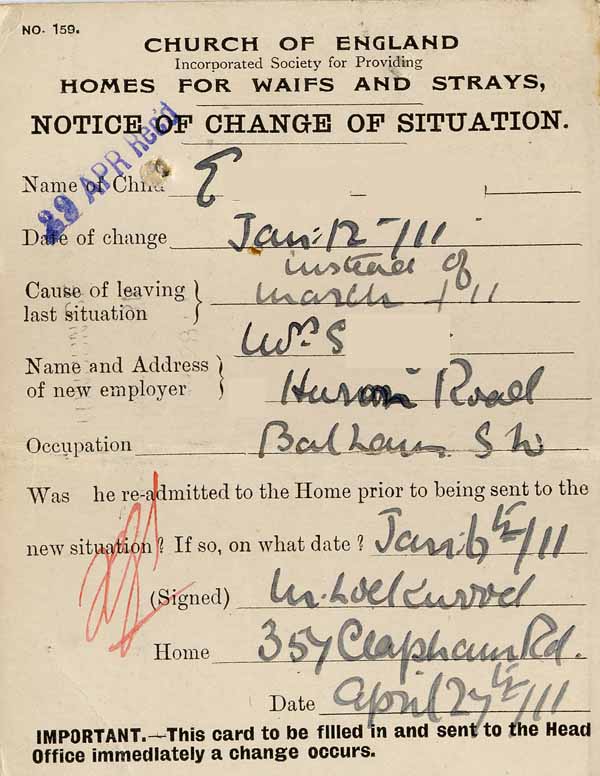 NO. 159.
CHURCH OF ENGLAND
Incorporated Society for Providing
HOMES FOR WAIFS AND STRAYS,
NOTICE OF CHANGE OF SITUATION.
29 APR Rec'd
Name of Child E
Date of change Jan: 12 - /11
instead of
Cause of leaving last situation March 1 11
Mrs S
Name and Address of new employer Huron Road
Occupation Balham S W
Was he re-admitted to the Home prior to being sent to the
new situation? If so, on what date? Jan: 6th/11
(Signed) M. Lockwood
Home 357 Clapham Rd.
Date April 27th/11
IMPORTANT.—This card to be filled in and sent to the Head
Office immediately a change occurs.